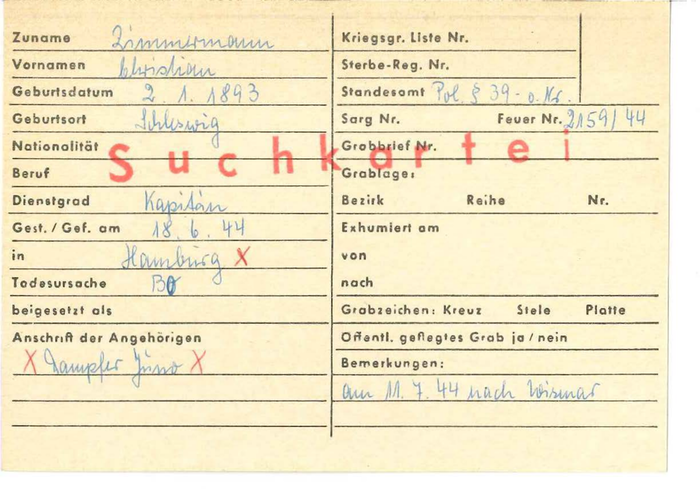 Zuname Zimmermann
Vornamen Christian
Geburtsdatum 2. 1. 1893
Geburtsort Schleswig
Nationalität
Beruf
Dienstgrad Kapitän
Gest. / Gef. am 18. 6. 44
in Hamburg X
Todesursache
beigesetzt als
Anschrift der Angehörigen
X Dampfer Juno X
Suchkartei
Kriegsgr. Liste Nr.
Sterbe-Reg. Nr.
Standesamt Pol. § 39 - o. Nr.
Sarg Nr. Feuer Nr. 2159/44
Grabbrief Nr.
Grablage:
Bezirk Reihe Nr.
Exhumiert am
von
nach
Grabzeichen: Kreuz Stele Platte
Öffentl. gepflegtes Grab ja / nein
Bemerkungen:
am 11. 7. 44 nach Wismar